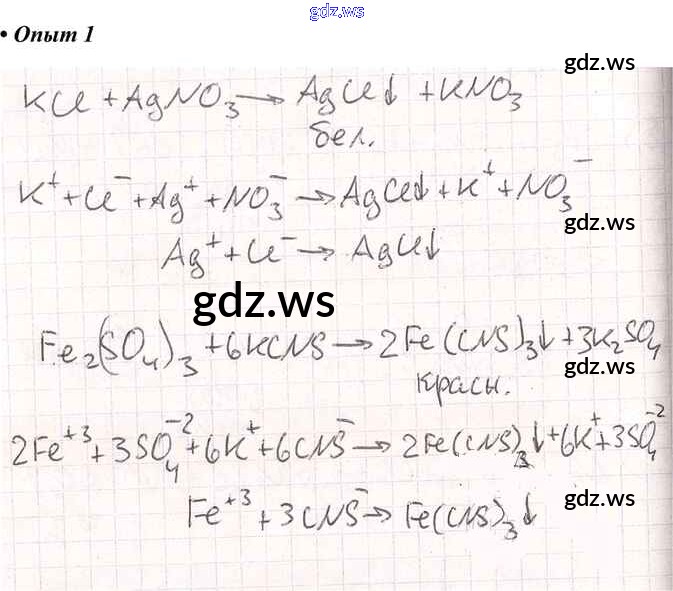 gdz.ws
• Опыт 1
gdz.ws
KCl + AgNO₃ → AgCl↓ + KNO₃
бел.
K⁺ + Cl⁻ + Ag⁺ + NO₃⁻ → AgCl↓ + K⁺ + NO₃⁻
gdz.ws
Ag⁺ + Cl⁻ → AgCl↓
gdz.ws
Fe₂(SO₄)₃ + 6KCNS → 2Fe(CNS)₃↓ + 3K₂SO₄
gdz.ws
красн.
2Fe⁺³ + 3SO₄⁻² + 6K⁺ + 6CNS⁻ → 2Fe(CNS)₃↓ + 6K⁺ + 3SO₄⁻²
gdz.ws
Fe⁺³ + 3CNS⁻ → Fe(CNS)₃↓